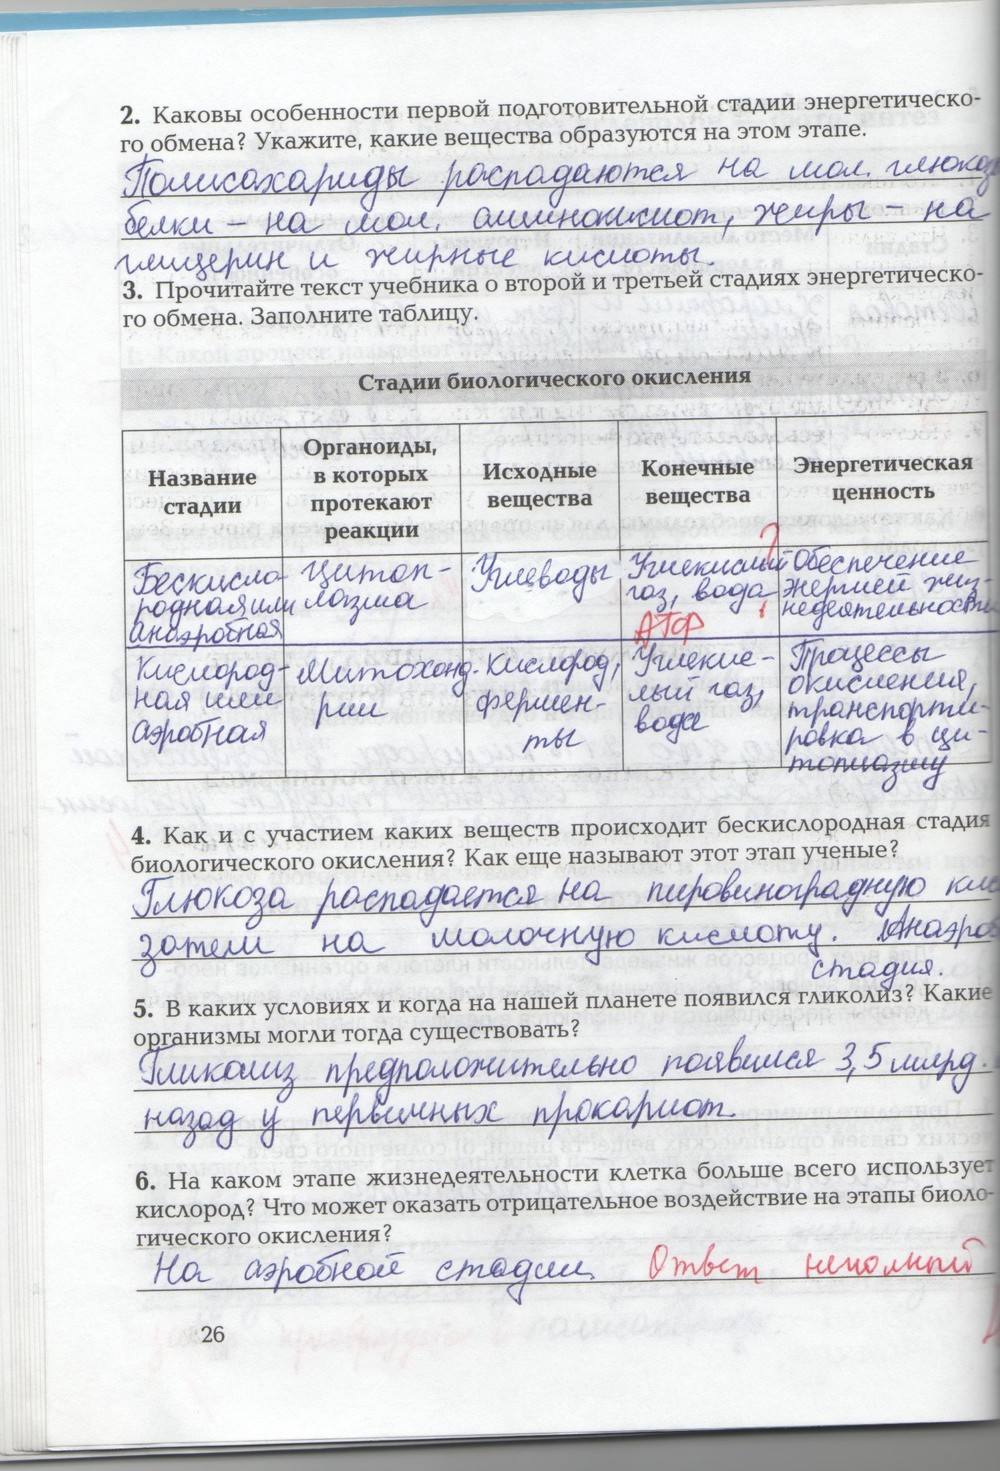 2. Каковы особенности первой подготовительной стадии энергетическо-
го обмена? Укажите, какие вещества образуются на этом этапе.
Полисахариды распадаются на мол. глюкозы
белки – на мол. аминокислот, жиры – на
глицерин и жирные кислоты.
3. Прочитайте текст учебника о второй и третьей стадиях энергетическо-
го обмена. Заполните таблицу.
Стадии биологического окисления
Название
стадии
Органоиды,
в которых
протекают
реакции
Исходные
вещества
Конечные
вещества
Энергетическая
ценность
Бескисло-
родная или
анаэробная
Цитоп-
лазма
Углеводы
?
Углекислый
газ, вода
!
АТФ
Обеспечение
энергией жиз-
недеятельности
Кислород-
ная или
аэробная
Митохонд-
рии
Кислород,
фермен-
ты
Углекис-
лый газ,
вода
Процессы
окисления,
транспорти-
ровка в ци-
топлазму
4. Как и с участием каких веществ происходит бескислородная стадия
биологического окисления? Как еще называют этот этап ученые?
Глюкоза распадается на пировиноградную кис
затем на молочную кислоту. Анаэроб
стадия.
5. В каких условиях и когда на нашей планете появился гликолиз? Какие
организмы могли тогда существовать?
Гликолиз предположительно появился 3,5 млрд.
назад у первичных прокариот.
6. На каком этапе жизнедеятельности клетка больше всего использует
кислород? Что может оказать отрицательное воздействие на этапы биоло-
гического окисления?
На аэробной стадии. Ответ неполный
26